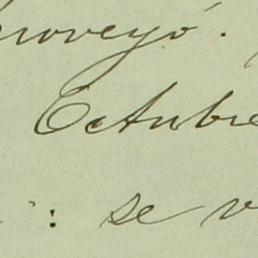 proveyó.
Octubre
: se v